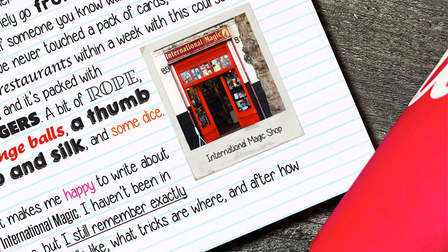 ely go fro
f someone you know wa
e never touched a pack of cards,
restaurants within a week with this cour s
, and it's packed with
GERS. A bit of ROPE,
nge balls, a thumb
p and silk, and some dice.
International Magic
International Magic Shop
t makes me happy to write about
International Magic. I haven't been in
, but I still remember exactly
like, what tricks are where, and after how